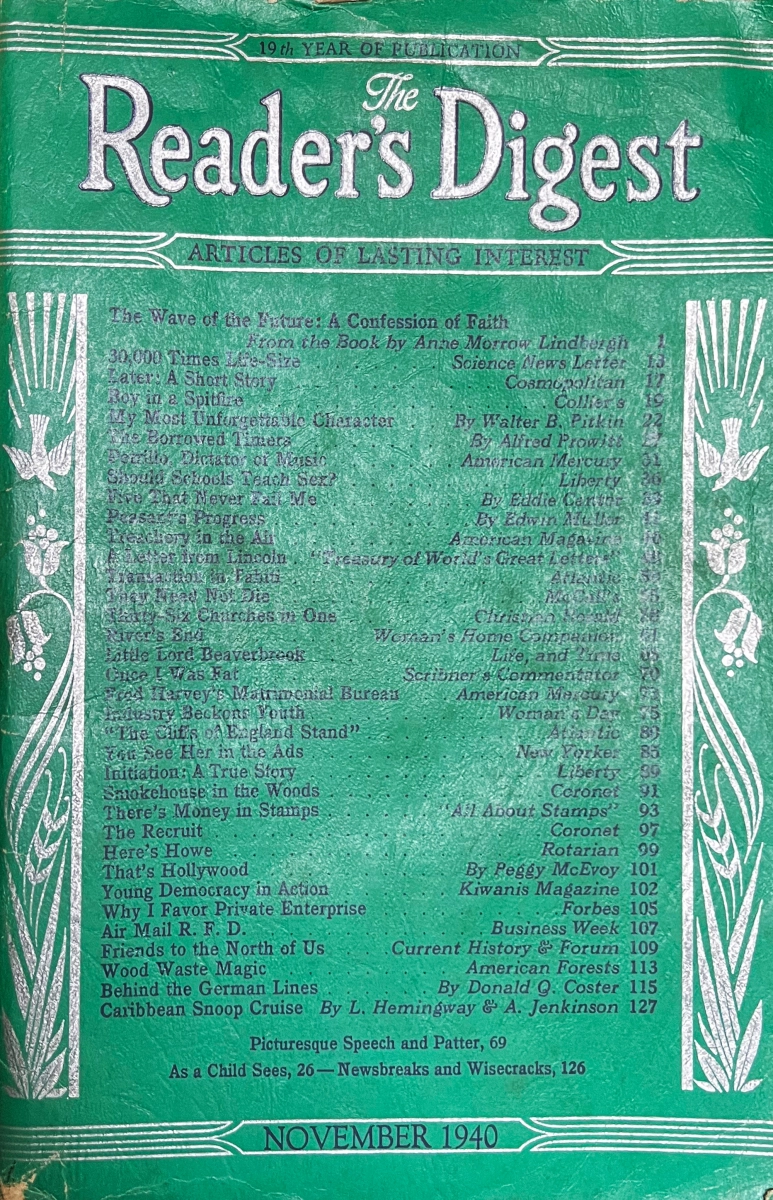 19th YEAR OF PUBLICATION
The
Reader's Digest
ARTICLES OF LASTING INTEREST
The Wave of the Future: A Confession of Faith
From the Book by Anne Morrow Lindbergh 1
30,000 Times Life-Size Science News Letter 13
Later: A Short Story Cosmopolitan 17
Boy in a Spitfire Collier's 19
My Most Unforgettable Character By Walter B. Pitkin 22
The Borrowed Timers By Alfred Prowitt
Petrillo, Dictator of Music American Mercury 31
Should Schools Teach Sex? Liberty 36
Five That Never Fail Me By Eddie Cantor 39
Peasant's Progress By Edwin Muller
Treachery in the Air American Magazine
A Letter from Lincoln "Treasury of World's Great Letters"
Transaction in Tahiti Atlantic
They Need Not Die McCall's
Thirty-Six Churches in One Christian Herald
River's End Woman's Home Companion
Little Lord Beaverbrook Life, and Time
Once I Was Fat Scribner's Commentator 70
Fred Harvey's Matrimonial Bureau American Mercury
Industry Beckons Youth Woman's Day 75
"The Cliffs of England Stand" Atlantic
You See Her in the Ads New Yorker 85
Initiation: A True Story Liberty 89
Smokehouse in the Woods Coronet 91
There's Money in Stamps "All About Stamps" 93
The Recruit Coronet 97
Here's Howe Rotarian 99
That's Hollywood By Peggy McEvoy 101
Young Democracy in Action Kiwanis Magazine 102
Why I Favor Private Enterprise Forbes 105
Air Mail R. F. D. Business Week 107
Friends to the North of Us Current History & Forum 109
Wood Waste Magic American Forests 113
Behind the German Lines By Donald Q. Coster 115
Caribbean Snoop Cruise By L. Hemingway & A. Jenkinson 127
Picturesque Speech and Patter, 69
As a Child Sees, 26 — Newsbreaks and Wisecracks, 126
NOVEMBER 1940